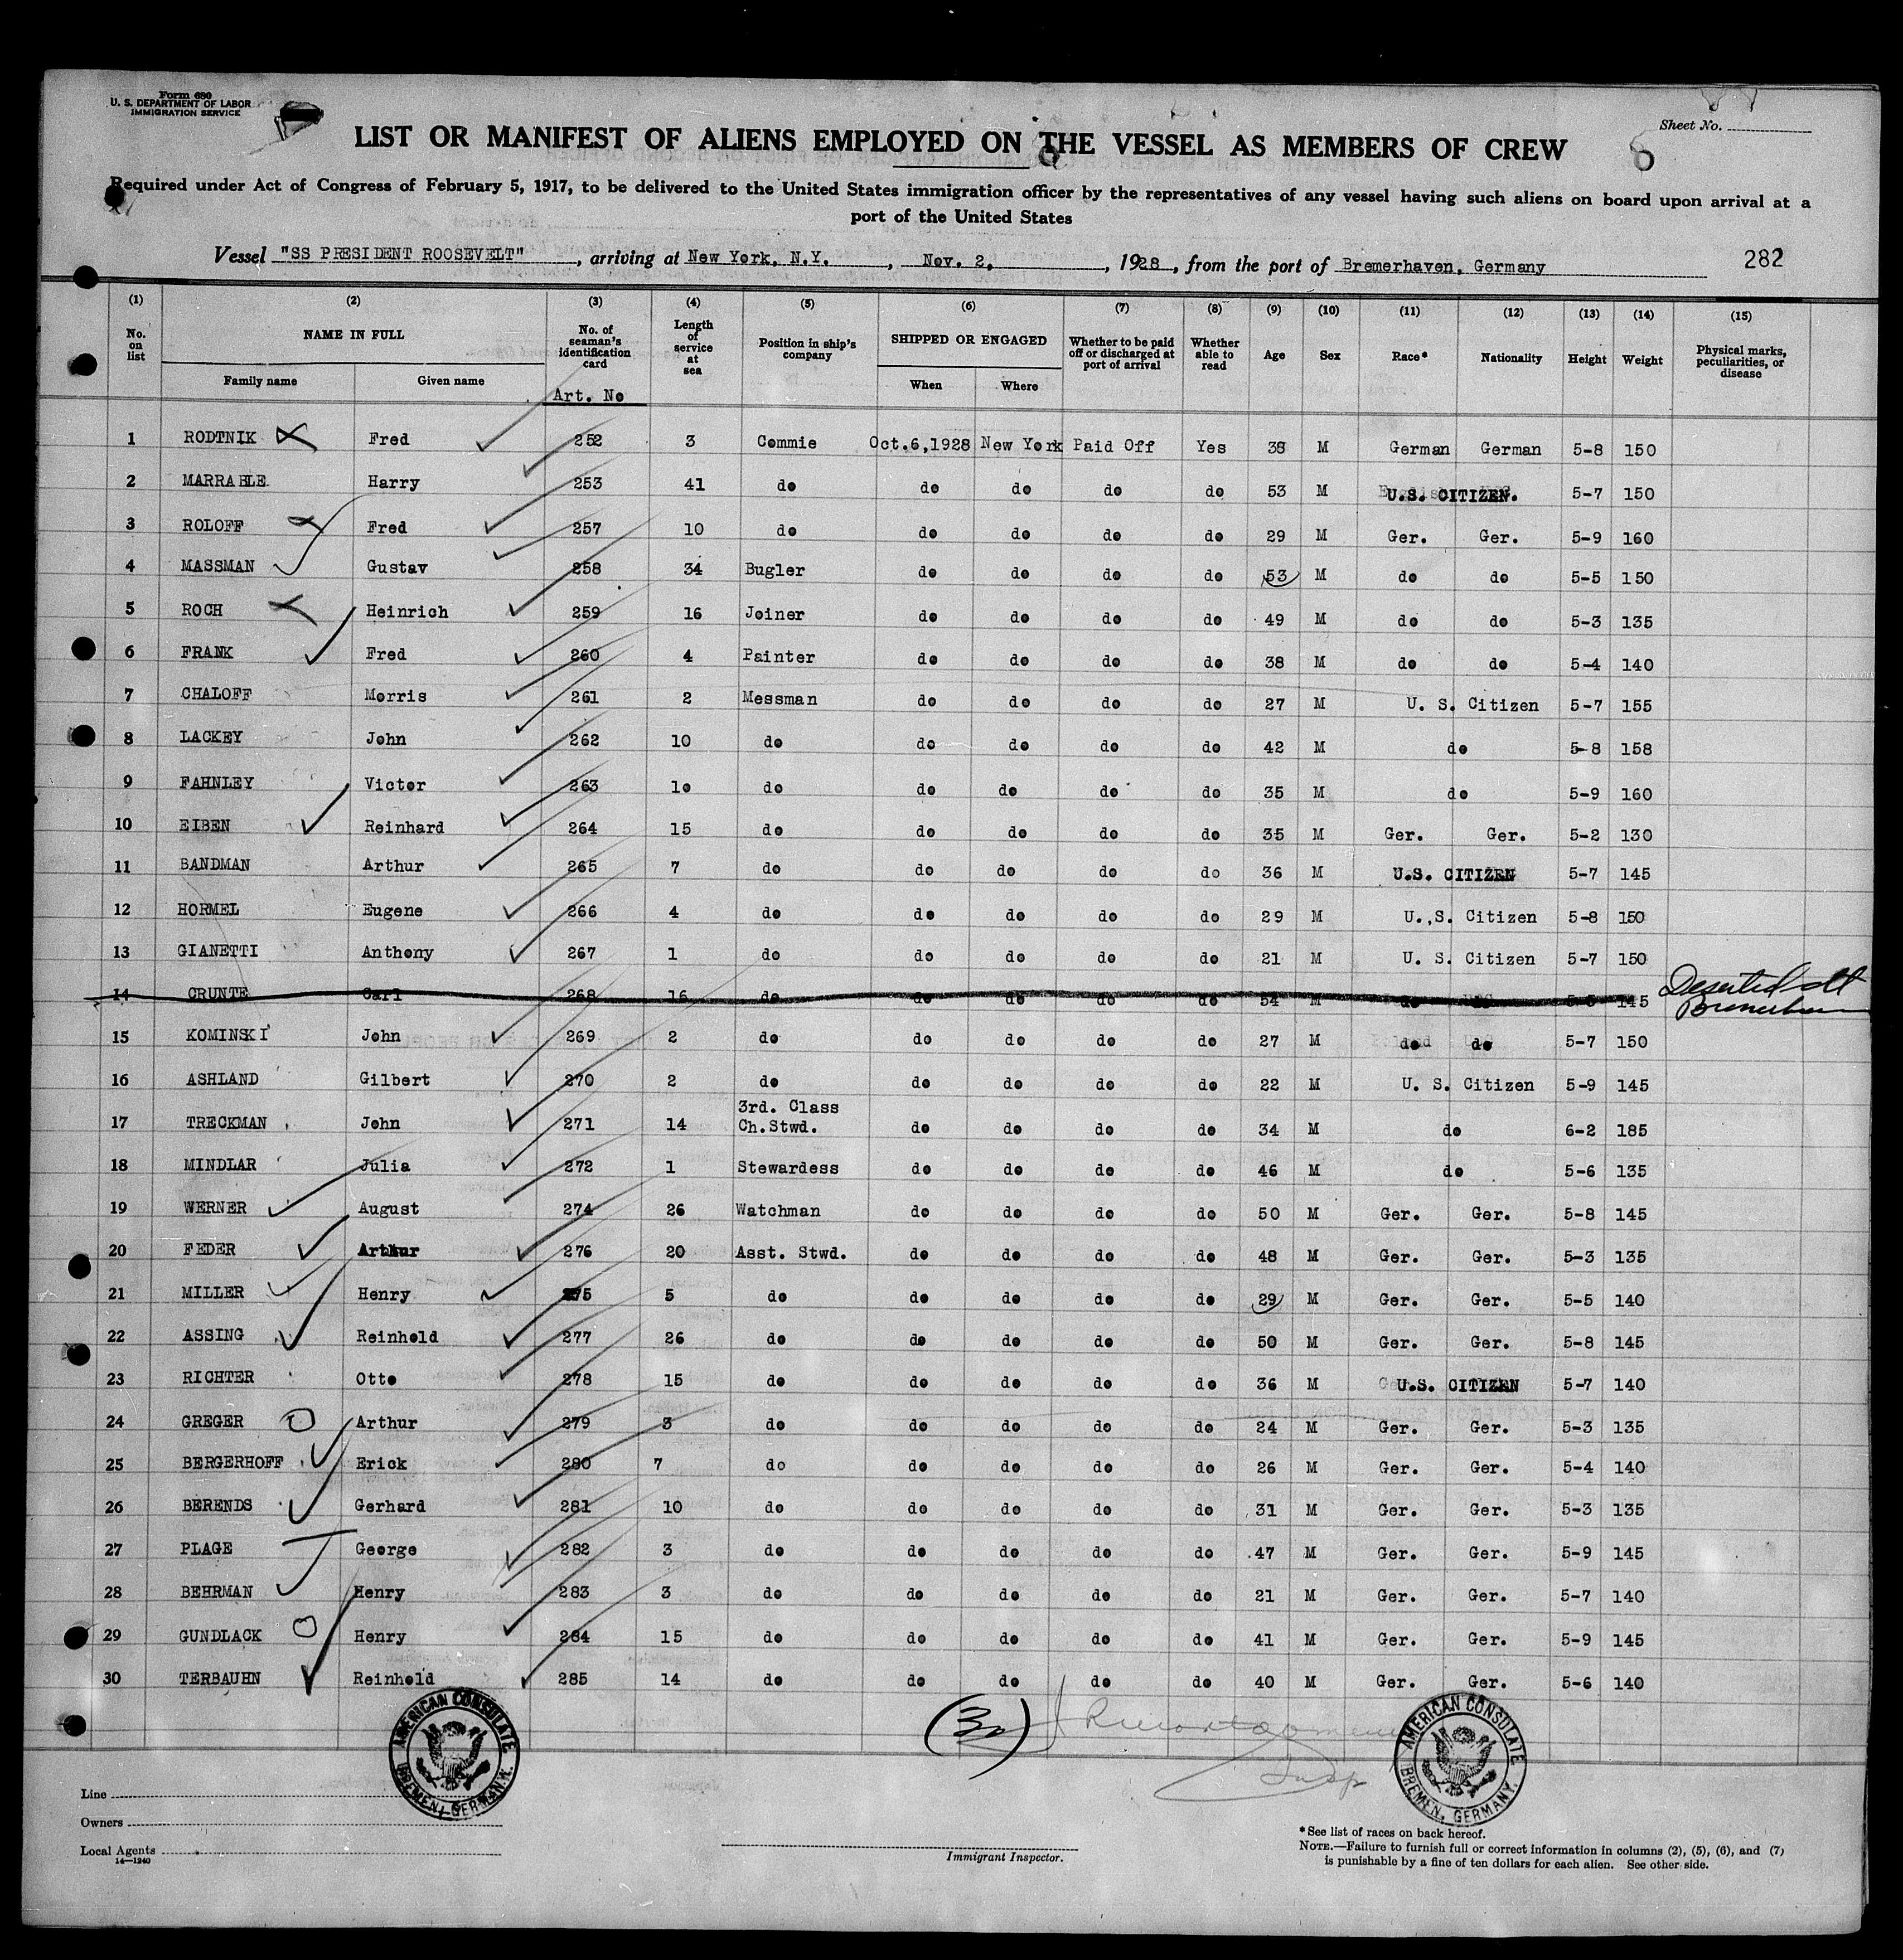 Form 680
U. S. DEPARTMENT OF LABOR
IMMIGRATION SERVICE
Sheet No.
LIST OR MANIFEST OF ALIENS EMPLOYED ON THE VESSEL AS MEMBERS OF CREW
Required under Act of Congress of February 5, 1917, to be delivered to the United States immigration officer by the representatives of any vessel having such aliens on board upon arrival at a
port of the United States
Vessel "SS PRESIDENT ROOSEVELT", arriving at New York, N.Y., Nov. 2, 1928, from the port of Bremerhaven, Germany 282
(1) (2) (3) (4) (5) (6) (7) (8) (9) (10) (11) (12) (13) (14) (15)
No. on list NAME IN FULL Family name Given name No. of seaman's identification card Art. No Length of service at sea Position in ship's company SHIPPED OR ENGAGED When Where Whether to be paid off or discharged at port of arrival Whether able to read Age Sex Race* Nationality Height Weight Physical marks, peculiarities, or disease
1 RODTNIK Fred 252 3 Commie Oct.6,1928 New York Paid Off Yes 38 M German German 5-8 150
2 MARRABLE Harry 253 41 do do do do do 53 M U.S. CITIZEN. 5-7 150
3 ROLOFF Fred 257 10 do do do do do 29 M Ger. Ger. 5-9 160
4 MASSMAN Gustav 258 34 Bugler do do do do 53 M do do 5-5 150
5 ROCH Heinrich 259 16 Joiner do do do do 49 M do do 5-3 135
6 FRANK Fred 260 4 Painter do do do do 38 M do do 5-4 140
7 CHALOFF Morris 261 2 Messman do do do do 27 M U. S. Citizen 5-7 155
8 LACKEY John 262 10 do do do do do 42 M do 5-8 158
9 FAHNLEY Victor 263 1o do do do do do 35 M do 5-9 160
10 EIBEN Reinhard 264 15 do do do do do 35 M Ger. Ger. 5-2 130
11 BANDMAN Arthur 265 7 do do do do do 36 M U.S. CITIZEN 5-7 145
12 HORMEL Eugene 266 4 do do do do do 29 M U.,S. Citizen 5-8 150
13 GIANETTI Anthony 267 1 do do do do do 21 M U. S. Citizen 5-7 150
14 CRUNTE Carl 268 16 do do do do do 54 M do 145 Deserted at
Bremerhaven
15 KOMINSKI John 269 2 do do do do do 27 M do do 5-7 150
16 ASHLAND Gilbert 270 2 do do do do do 22 M U. S. Citizen 5-9 145
17 TRECKMAN John 271 14 3rd. Class Ch.Stwd. do do do do 34 M do 6-2 185
18 MINDLAR Julia 272 1 Stewardess do do do do 46 M do 5-6 135
19 WERNER August 274 26 Watchman do do do do 50 M Ger. Ger. 5-8 145
20 FEDER Arthur 276 20 Asst. Stwd. do do do do 48 M Ger. Ger. 5-3 135
21 MILLER Henry 275 5 do do do do do 29 M Ger. Ger. 5-5 140
22 ASSING Reinhold 277 26 do do do do do 50 M Ger. Ger. 5-8 145
23 RICHTER Otto 278 15 do do do do do 36 M U.S. CITIZEN 5-7 140
24 GREGER Arthur 279 3 do do do do do 24 M Ger. Ger. 5-3 135
25 BERGERHOFF Erick 280 7 do do do do do 26 M Ger. Ger. 5-4 140
26 BERENDS Gerhard 281 10 do do do do do 31 M Ger. Ger. 5-3 135
27 PLAGE George 282 3 do do do do do 47 M Ger. Ger. 5-9 145
28 BEHRMAN Henry 283 3 do do do do do 21 M Ger. Ger. 5-7 140
29 GUNDLACK Henry 284 15 do do do do do 41 M Ger. Ger. 5-9 145
30 TERBAUHN Reinhold 285 14 do do do do do 40 M Ger. Ger. 5-6 140
(30)
Insp
AMERICAN CONSULATE
BREMEN, GERMANY.
AMERICAN CONSULATE
BREMEN, GERMANY.
Line
Owners
Local Agents
14—1240
Immigrant Inspector.
*See list of races on back hereof.
NOTE.—Failure to furnish full or correct information in columns (2), (5), (6), and (7)
is punishable by a fine of ten dollars for each alien. See other side.